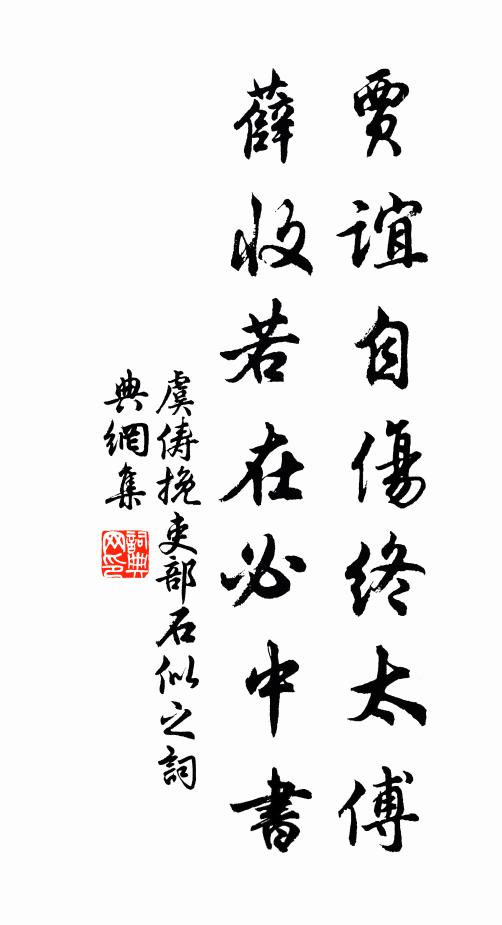 賈誼自傷終太傅
薛收若在必中書
虞俦挽吏部石似之詞
典網集
詞典
网印